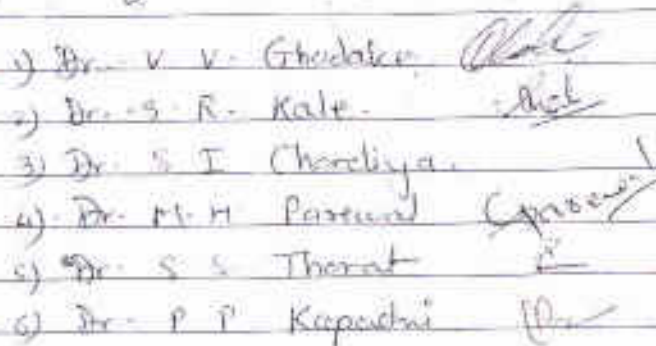 1) Dr. V. V. Ghodake
2) Dr. S. R. Kale.
3) Dr. S I Chordiya.
4) Dr. M. H Parewal
5) Dr. S S Thorat
6) Dr. P P Kapadni